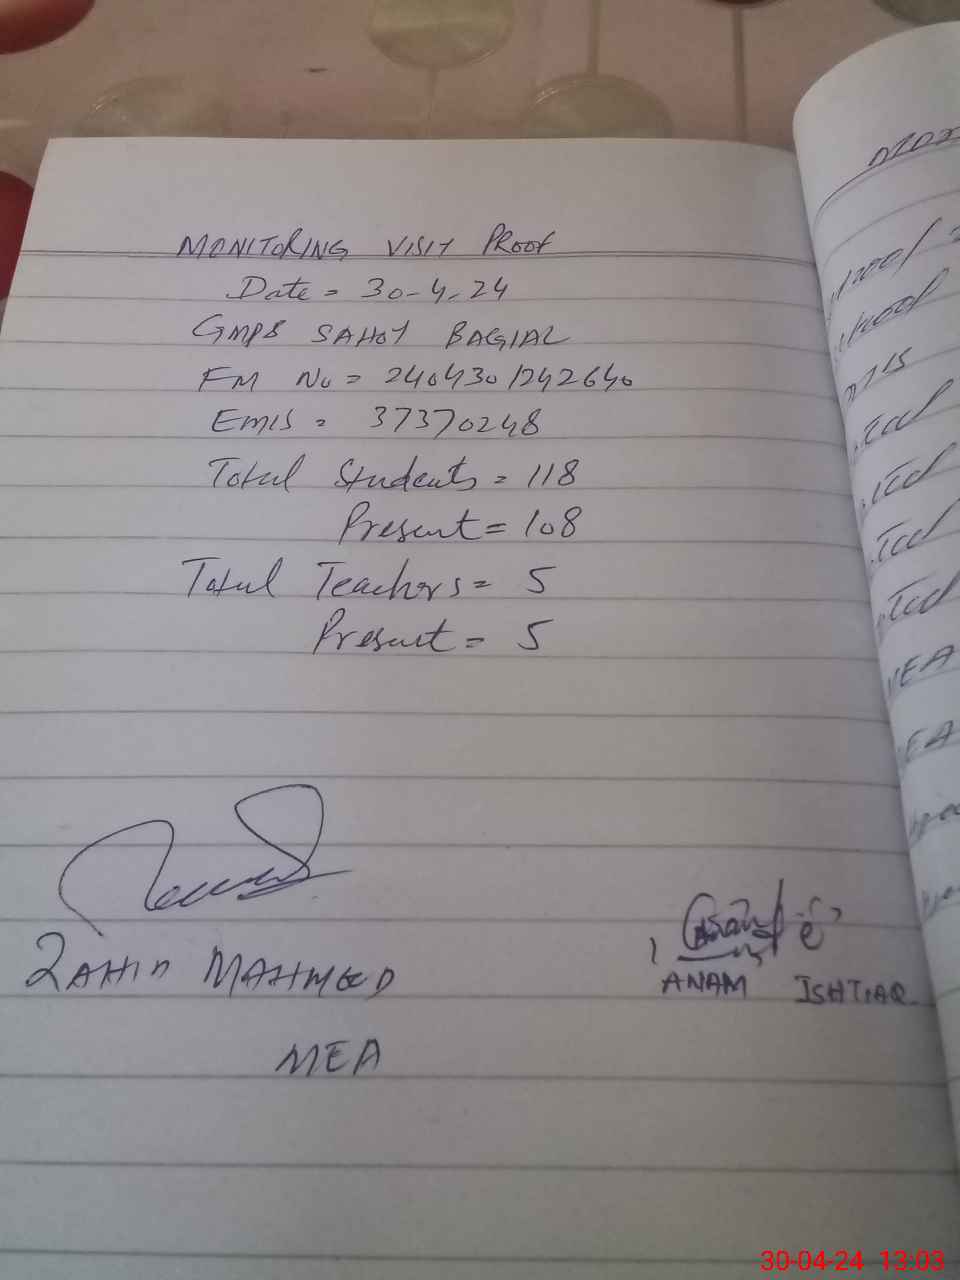 MONITORING VISIT PROOF
Date = 30-4-24
GMPS SAHOY BAGIAL
FM No = 2404301242640
Emis = 37370248
Total Students = 118
Present = 108
Total Teachers = 5
Present = 5
ZAHID MAHMOOD
ANAM ISHTIAQ
MEA
30-04-24 13:03